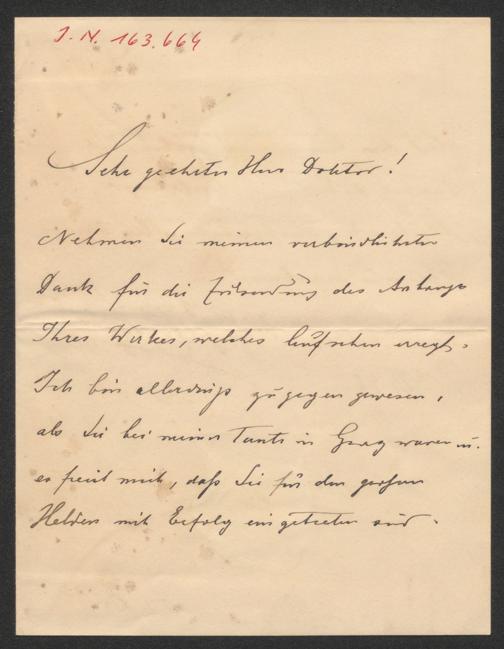 J. N. 163.664
Sehr geehrter Herr Doktor!
Nehmen Sie meinen verbindlichsten
Dank für die Zusendung des Anhangs
Ihres Werkes, welches Aufsehen erregt.
Ich bin allerdings zugegen gewesen,
als Sie bei meiner Tante in Graz waren u.
es freut mich, daß Sie für den großen
Helden mit Erfolg eingetreten sind.